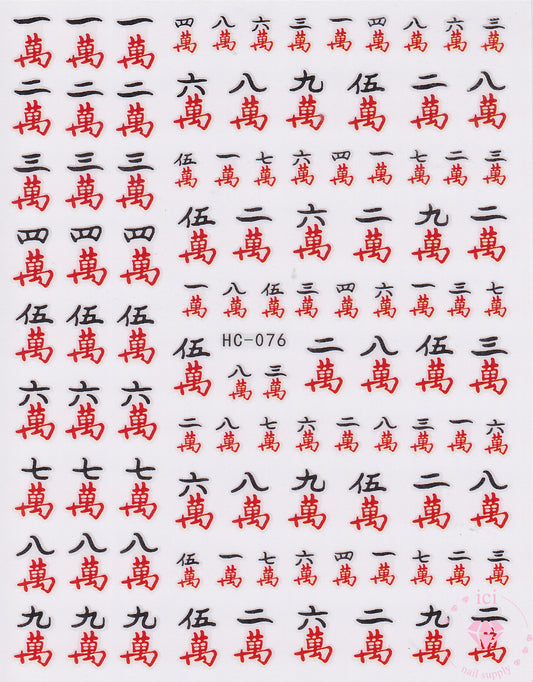 一萬 一萬 一萬
二萬 二萬 二萬
三萬 三萬 三萬
四萬 四萬 四萬
伍萬 伍萬 伍萬
六萬 六萬 六萬
七萬 七萬 七萬
八萬 八萬 八萬
九萬 九萬 九萬
四萬 八萬 六萬 三萬 一萬 四萬 八萬 六萬 三萬
六萬 八萬 九萬 伍萬 二萬 八萬
伍萬 一萬 七萬 六萬 四萬 一萬 七萬 二萬 三萬
伍萬 二萬 六萬 二萬 九萬 二萬
一萬 八萬 伍萬 三萬 四萬 六萬 一萬 三萬 七萬
HC-076
伍萬 八萬 三萬 二萬 八萬 伍萬 三萬
二萬 八萬 七萬 六萬 二萬 八萬 三萬 一萬 六萬
六萬 八萬 九萬 伍萬 二萬 八萬
伍萬 一萬 七萬 六萬 四萬 一萬 七萬 二萬 三萬
伍萬 二萬 六萬 二萬 九萬 二萬
ici
nail supply